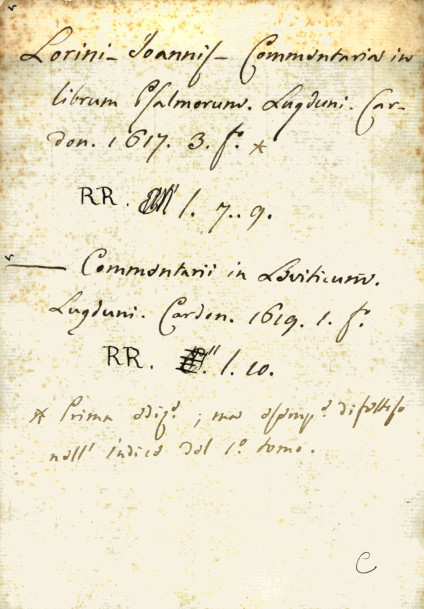 Lorini- Joannis- Commentaria in
librum Psalmorum. Lugduni. Car-
don. 1617. 3. f.° *
RR. l. 7. 9.
— Commentarii in Leviticum.
Lugduni. Cardon. 1619. 1. f.°
RR. l. 10.
* Prima ediz.e ; ma esemp.e difettoso
nell' indice del 1.° tomo.
C